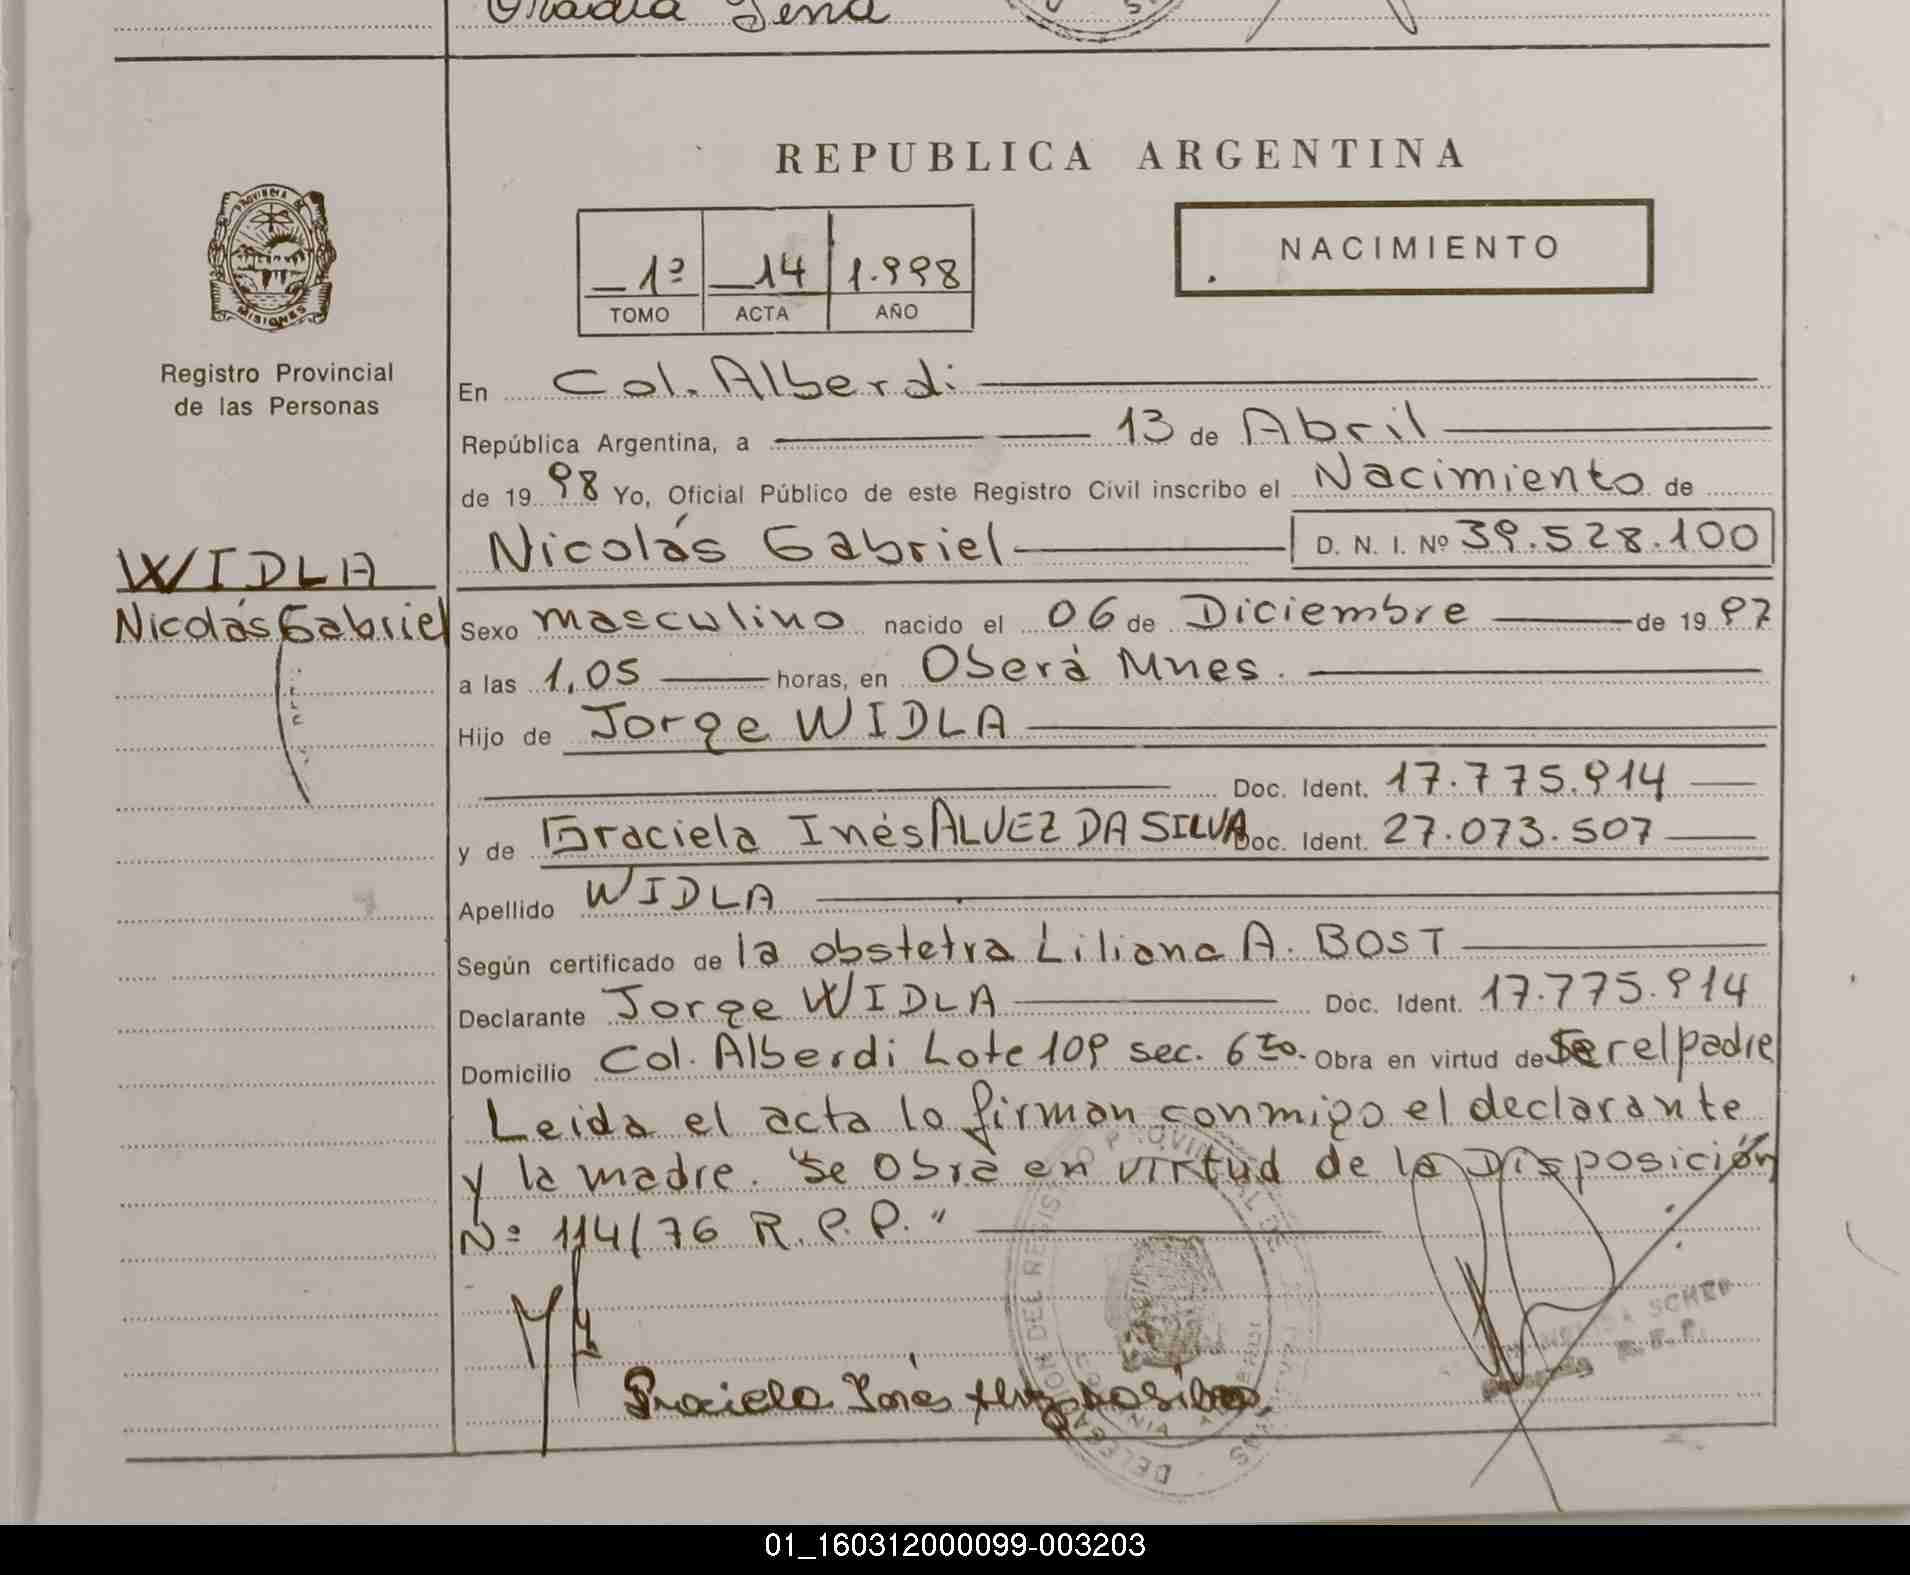 REPUBLICA ARGENTINA
NACIMIENTO
1º 14 1.998
TOMO ACTA AÑO
PROVINCIA DE
MISIONES
Registro Provincial
de las Personas
WIDLA
Nicolás Gabriel
En Col. Alberdi
República Argentina, a 13 de Abril
de 19 98 Yo, Oficial Público de este Registro Civil inscribo el Nacimiento de
Nicolás Gabriel D. N. I. Nº 39.528.100
Sexo masculino nacido el 06 de Diciembre de 19 97
a las 1,05 horas, en Oberá Mnes.
Hijo de Jorge WIDLA
Doc. Ident. 17.775.914
y de Graciela Inés ALVEZ DA SILVA Doc. Ident. 27.073.507
Apellido WIDLA
Según certificado de la obstetra Liliana A. BOST
Declarante Jorge WIDLA Doc. Ident. 17.775.914
Domicilio Col. Alberdi Lote 109 sec. 6to. Obra en virtud de Ser el padre
Leida el acta lo firman conmigo el declarante
y la madre. "Se Obra en virtud de la Disposición
Nº 114/76 R.P.P."
Graciela Inés
DELEGACION DEL REGISTRO PROVINCIAL DE
01_160312000099-003203